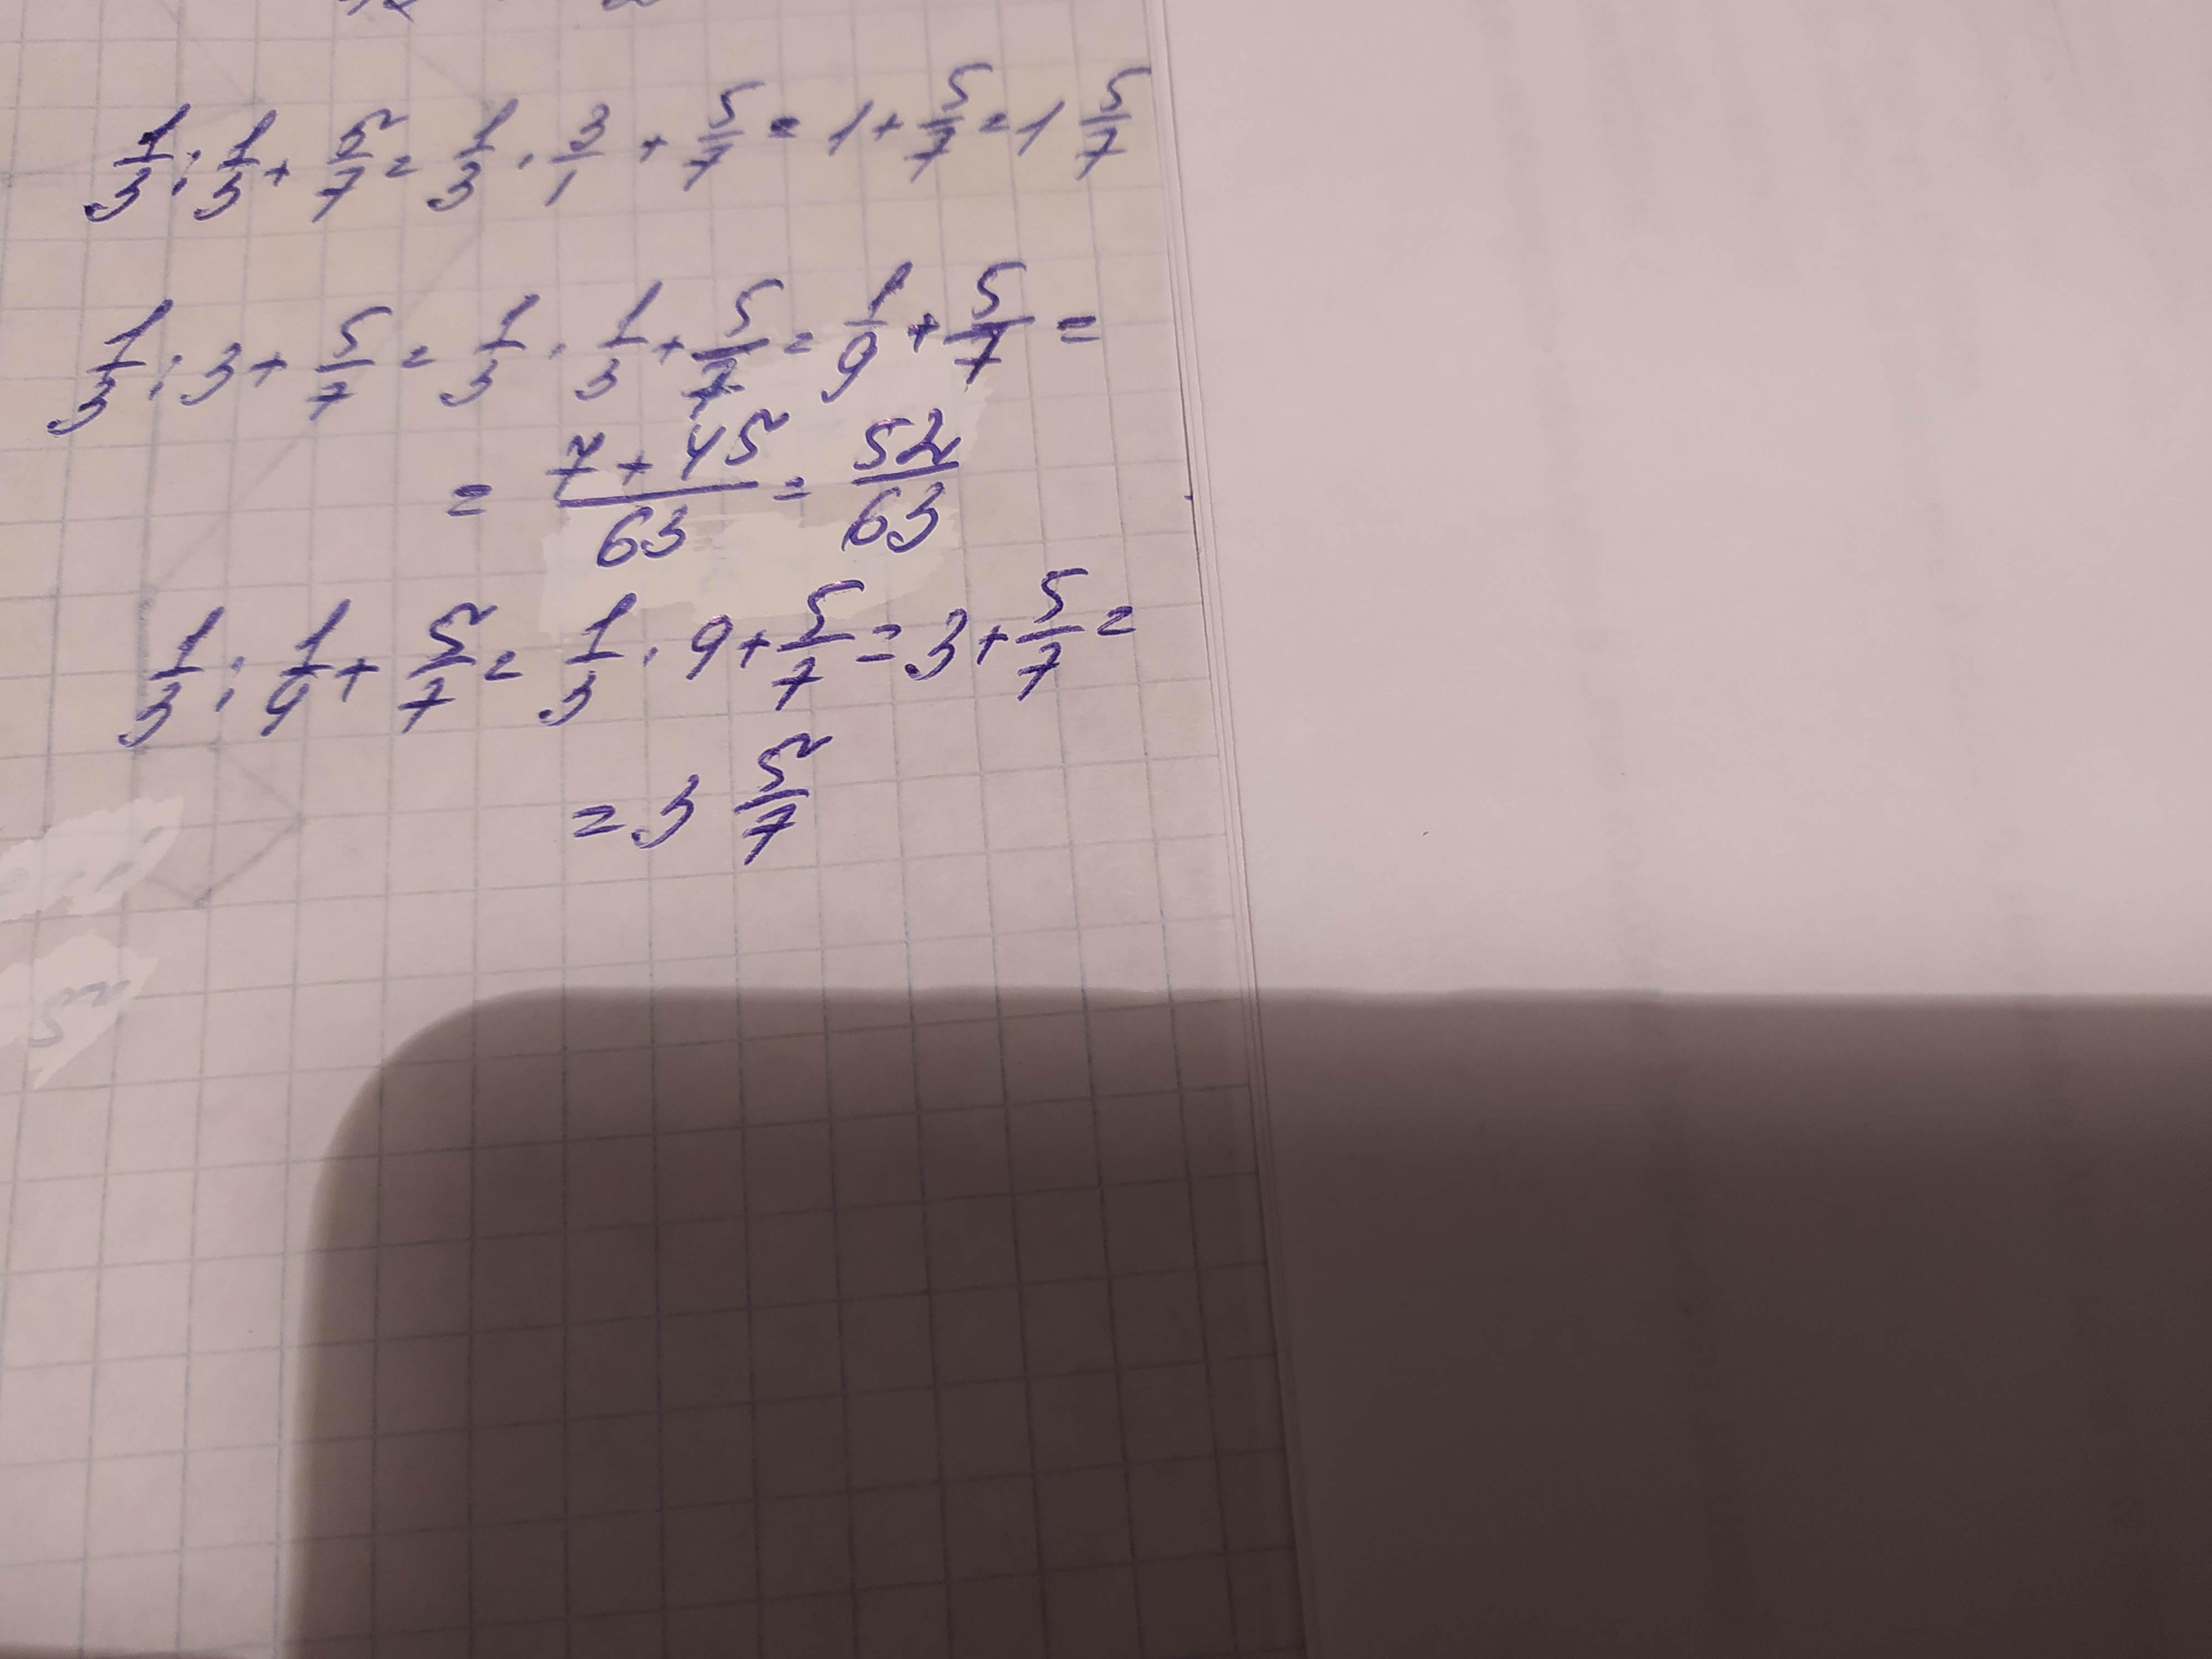 1/3 : 1/3 + 5/7 = 1/3 · 3/1 + 5/7 = 1 + 5/7 = 1 5/7
1/3 : 3 + 5/7 = 1/3 · 1/3 + 5/7 = 1/9 + 5/7 =
= (7 + 45)/63 = 52/63
1/3 : 1/9 + 5/7 = 1/3 · 9 + 5/7 = 3 + 5/7 =
= 3 5/7